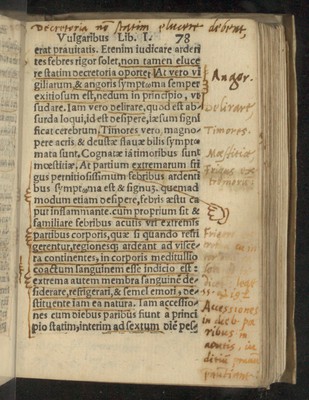 Decretoria nō statim elucere debent,
Vulgaribus Lib. I. 78
erat prauitatis. Etenim iudicare ardenti
tes febres rigor solet, non tamen eluce
re statim decretoria oportet. At vero vi
giliarum, & angoris symptoma semper
exitiosum est, nedum in principio, vbi
sudare. Iam vero delirare, quod est ab
surda loqui, id est desipere, læsum signi
ficat cerebrum. Timores vero magno
pere aeris, & deustæ flauæ bilis symptō
mata sunt. Cognatæ iis timoribus sunt
mœstitiæ. At partium extremarum fri
gus pernitiosissimum febribus ardenti
bus symptoma est & signū. quemad
modum etiam desipere, febris æstu ca
put inflammante. cum proprium sit &
familiare febribus acutis vti extremis
partibus corporis, quæ si quando refri
gerentur, regionesq; ardeant ad viscera
continentes, in corporis meditullio
coactum sanguinem esse indicio est:
extrema autem membra sanguine de
siderare, refrigerari, & semel emori, de
stituente iam ea natura. Iam accessio
nes cum diebus paribus fiunt a princi
pio statim, interim ad sextum diē pes
Angor.
Delirare
Timores.
Mœstitiæ
Frigus
Accessiones
in dieb. pa
ribus in
acutis,